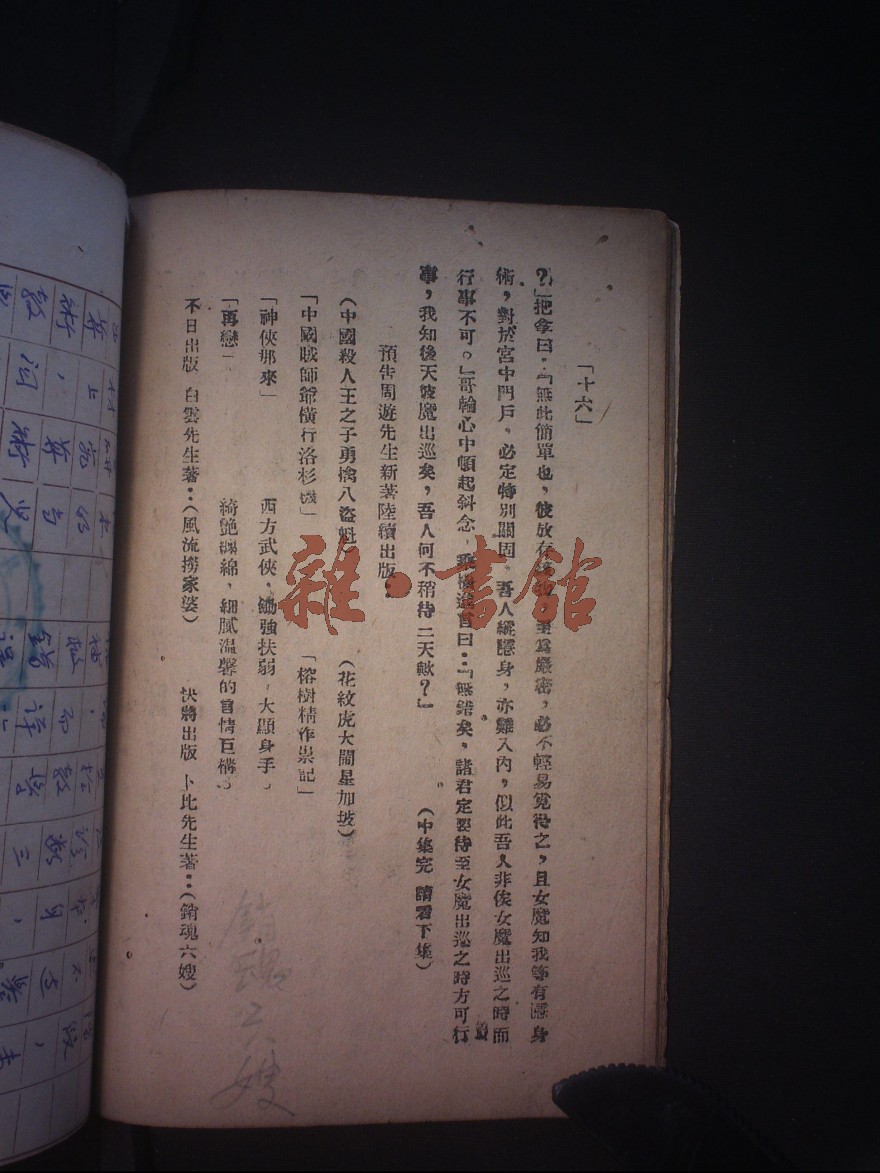 「十六」
?」把拿曰:「無此簡單也,彼放存 為嚴密,必不輕易寛得之,且女魔知我等有隱身
術,對於宮中門戶,必定特別關固,吾人縱隱身,亦難入內,似此吾人非俟女魔出巡之時而
行事不可。」哥輪心中頓起斜念, 曰:「無錯矣,諸君定要待至女魔出巡之時方可行
事,我知後天彼魔出巡矣,吾人何不稍待二天歟?」 (中集完 請看下集)
預告周遊先生新著陸續出版:
(中國殺人王之子勇擒八盜魁) (花紋虎大鬧星加坡)
「中國賊師爺橫行洛杉磯」 「榕樹精作祟記」
「神俠那來」 西方武俠,鋤強扶弱,大顯身手。
「再戀」 綺艷纏綿,細膩溫馨的言情巨構。
不日出版 白雲先生著:(風流撈家婆) 快將出版 卜比先生著:(銷魂六嫂)
雜·書館
銷魂六嫂